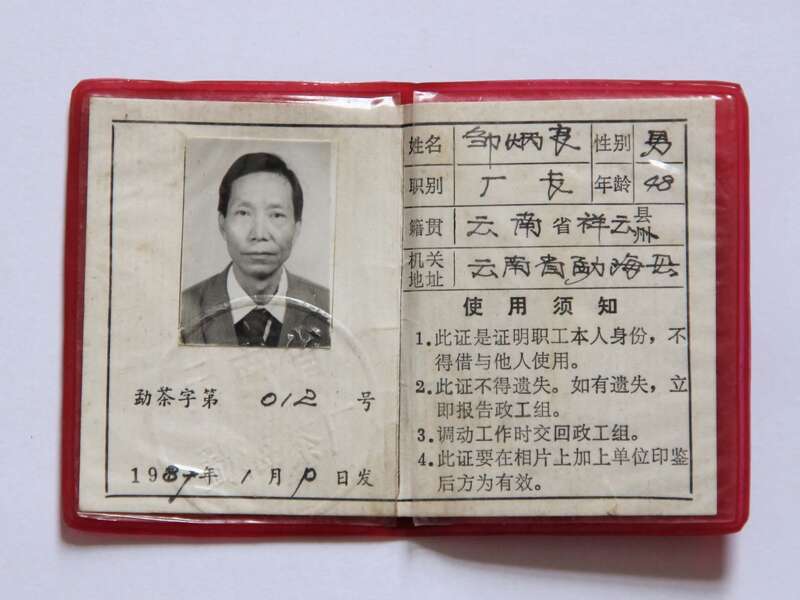 勐茶字第 012 号
1987年 1月10日发
姓名 邹炳良 性别 男
职别 厂长 年龄 48
籍贯 云南省祥云县州
机关地址 云南省勐海县
使用须知
1.此证是证明职工本人身份，不
得借与他人使用。
2.此证不得遗失。如有遗失，立
即报告政工组。
3.调动工作时交回政工组。
4.此证要在相片上加上单位印鉴
后方为有效。